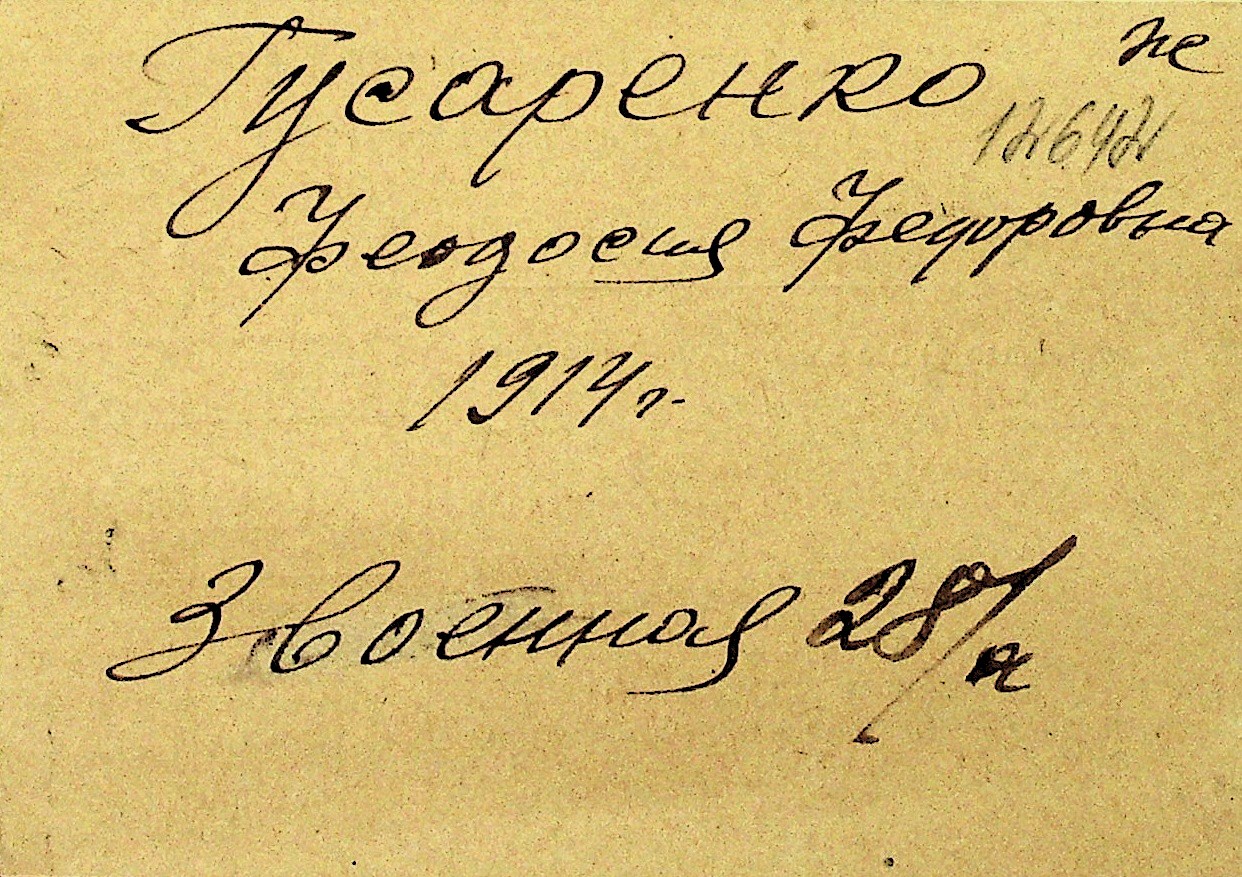 Гусаренко
12642
Феодосия Федоровна
1914 г.
3 военная 28/а